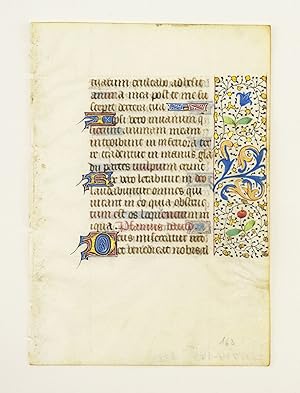 tuarum exultabo adhesit
anima mea post te me sus
cepit dextera tua
Ipsi vero in vanum que
sierunt animam meam
introibunt in inferiora ter
re tradentur in manus gla
dii partes vulpium erunt
Rex vero letabitur in deo
laudabuntur omnes qui
iurant in eo quia obstruc
tum est os loquentium in
iqua Psalmus david
Deus misereatur nostri
et benedicat nobis il
163